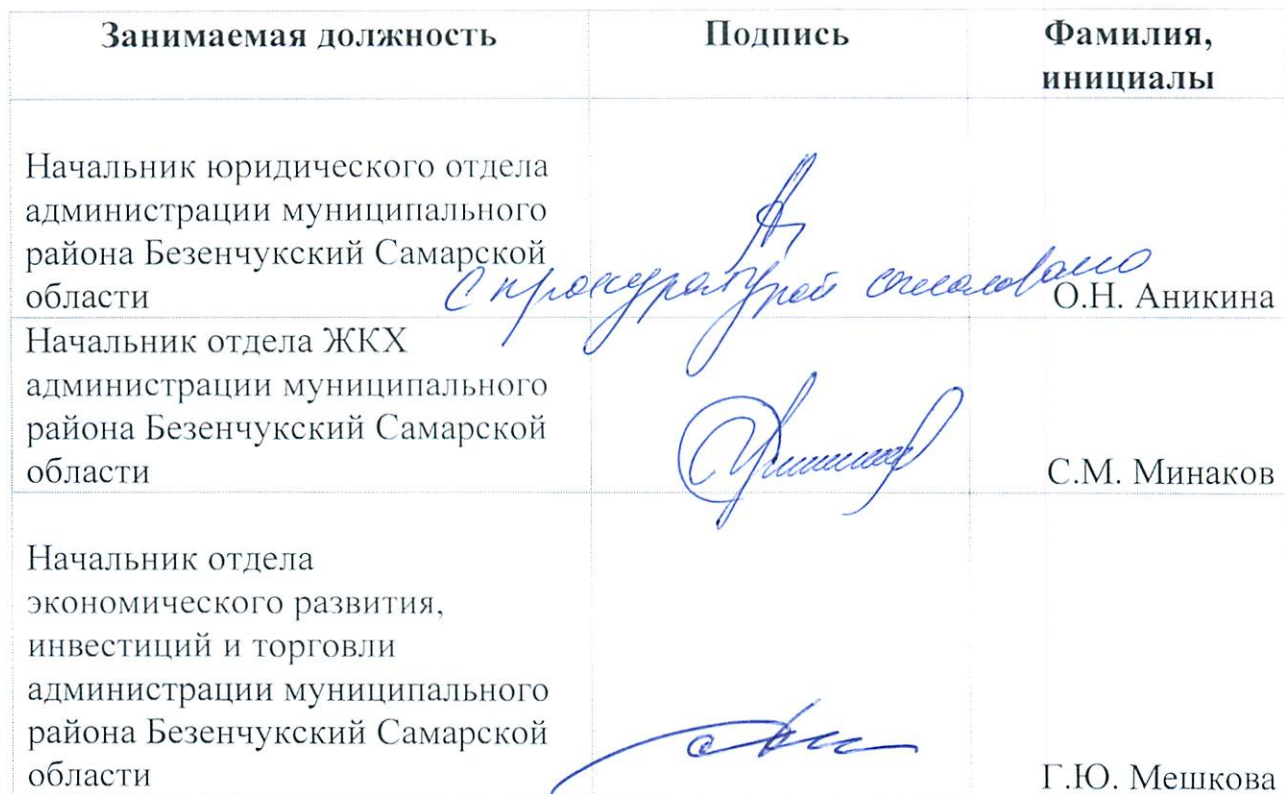 Занимаемая должность Подпись Фамилия,
инициалы
Начальник юридического отдела
администрации муниципального
района Безенчукский Самарской
области
С прокуратурой согласовано
О.Н. Аникина
Начальник отдела ЖКХ
администрации муниципального
района Безенчукский Самарской
области
С.М. Минаков
Начальник отдела
экономического развития,
инвестиций и торговли
администрации муниципального
района Безенчукский Самарской
области
Г.Ю. Мешкова